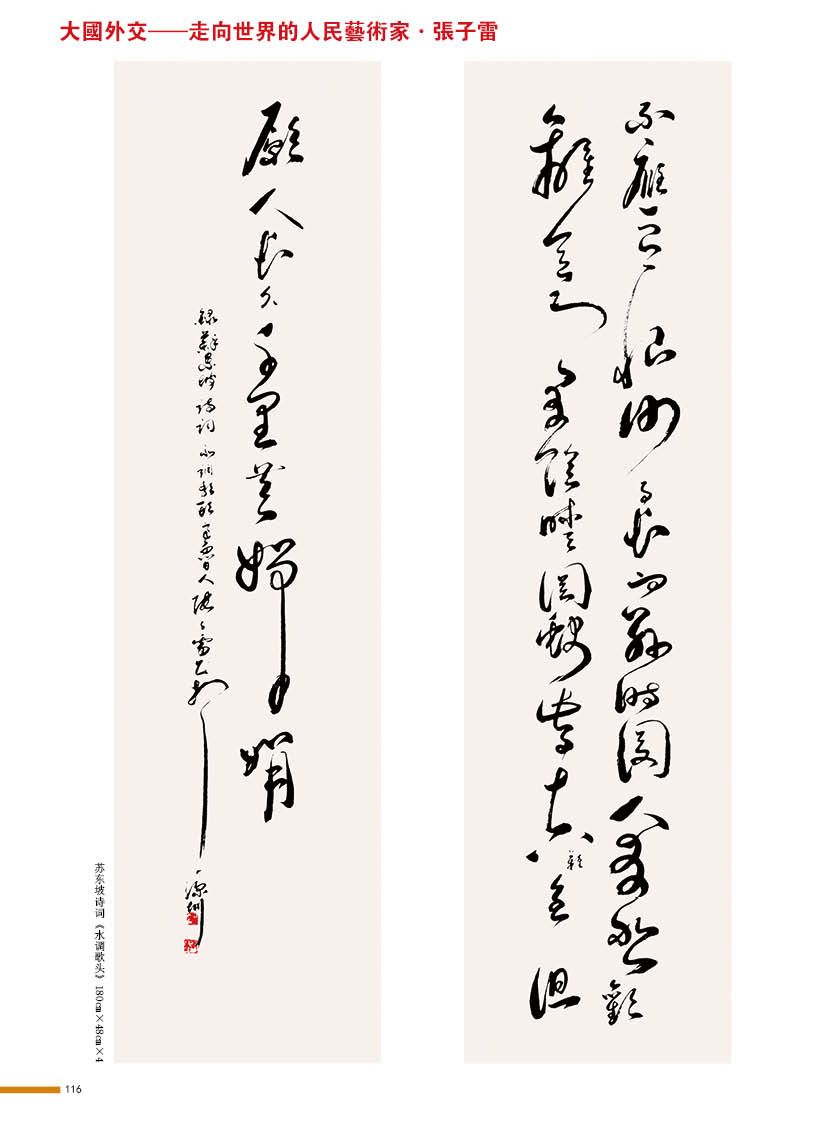 大國外交——走向世界的人民藝術家·張子雷
不應有恨何事長向別時圓人有悲歡
離合月有陰晴圓缺此事古難全但
願人長久千里共嬋娟
錄蘇東坡詩詞水調歌頭 魯人張子雷 深圳
苏东坡诗词《水调歌头》180㎝×48㎝×4
116